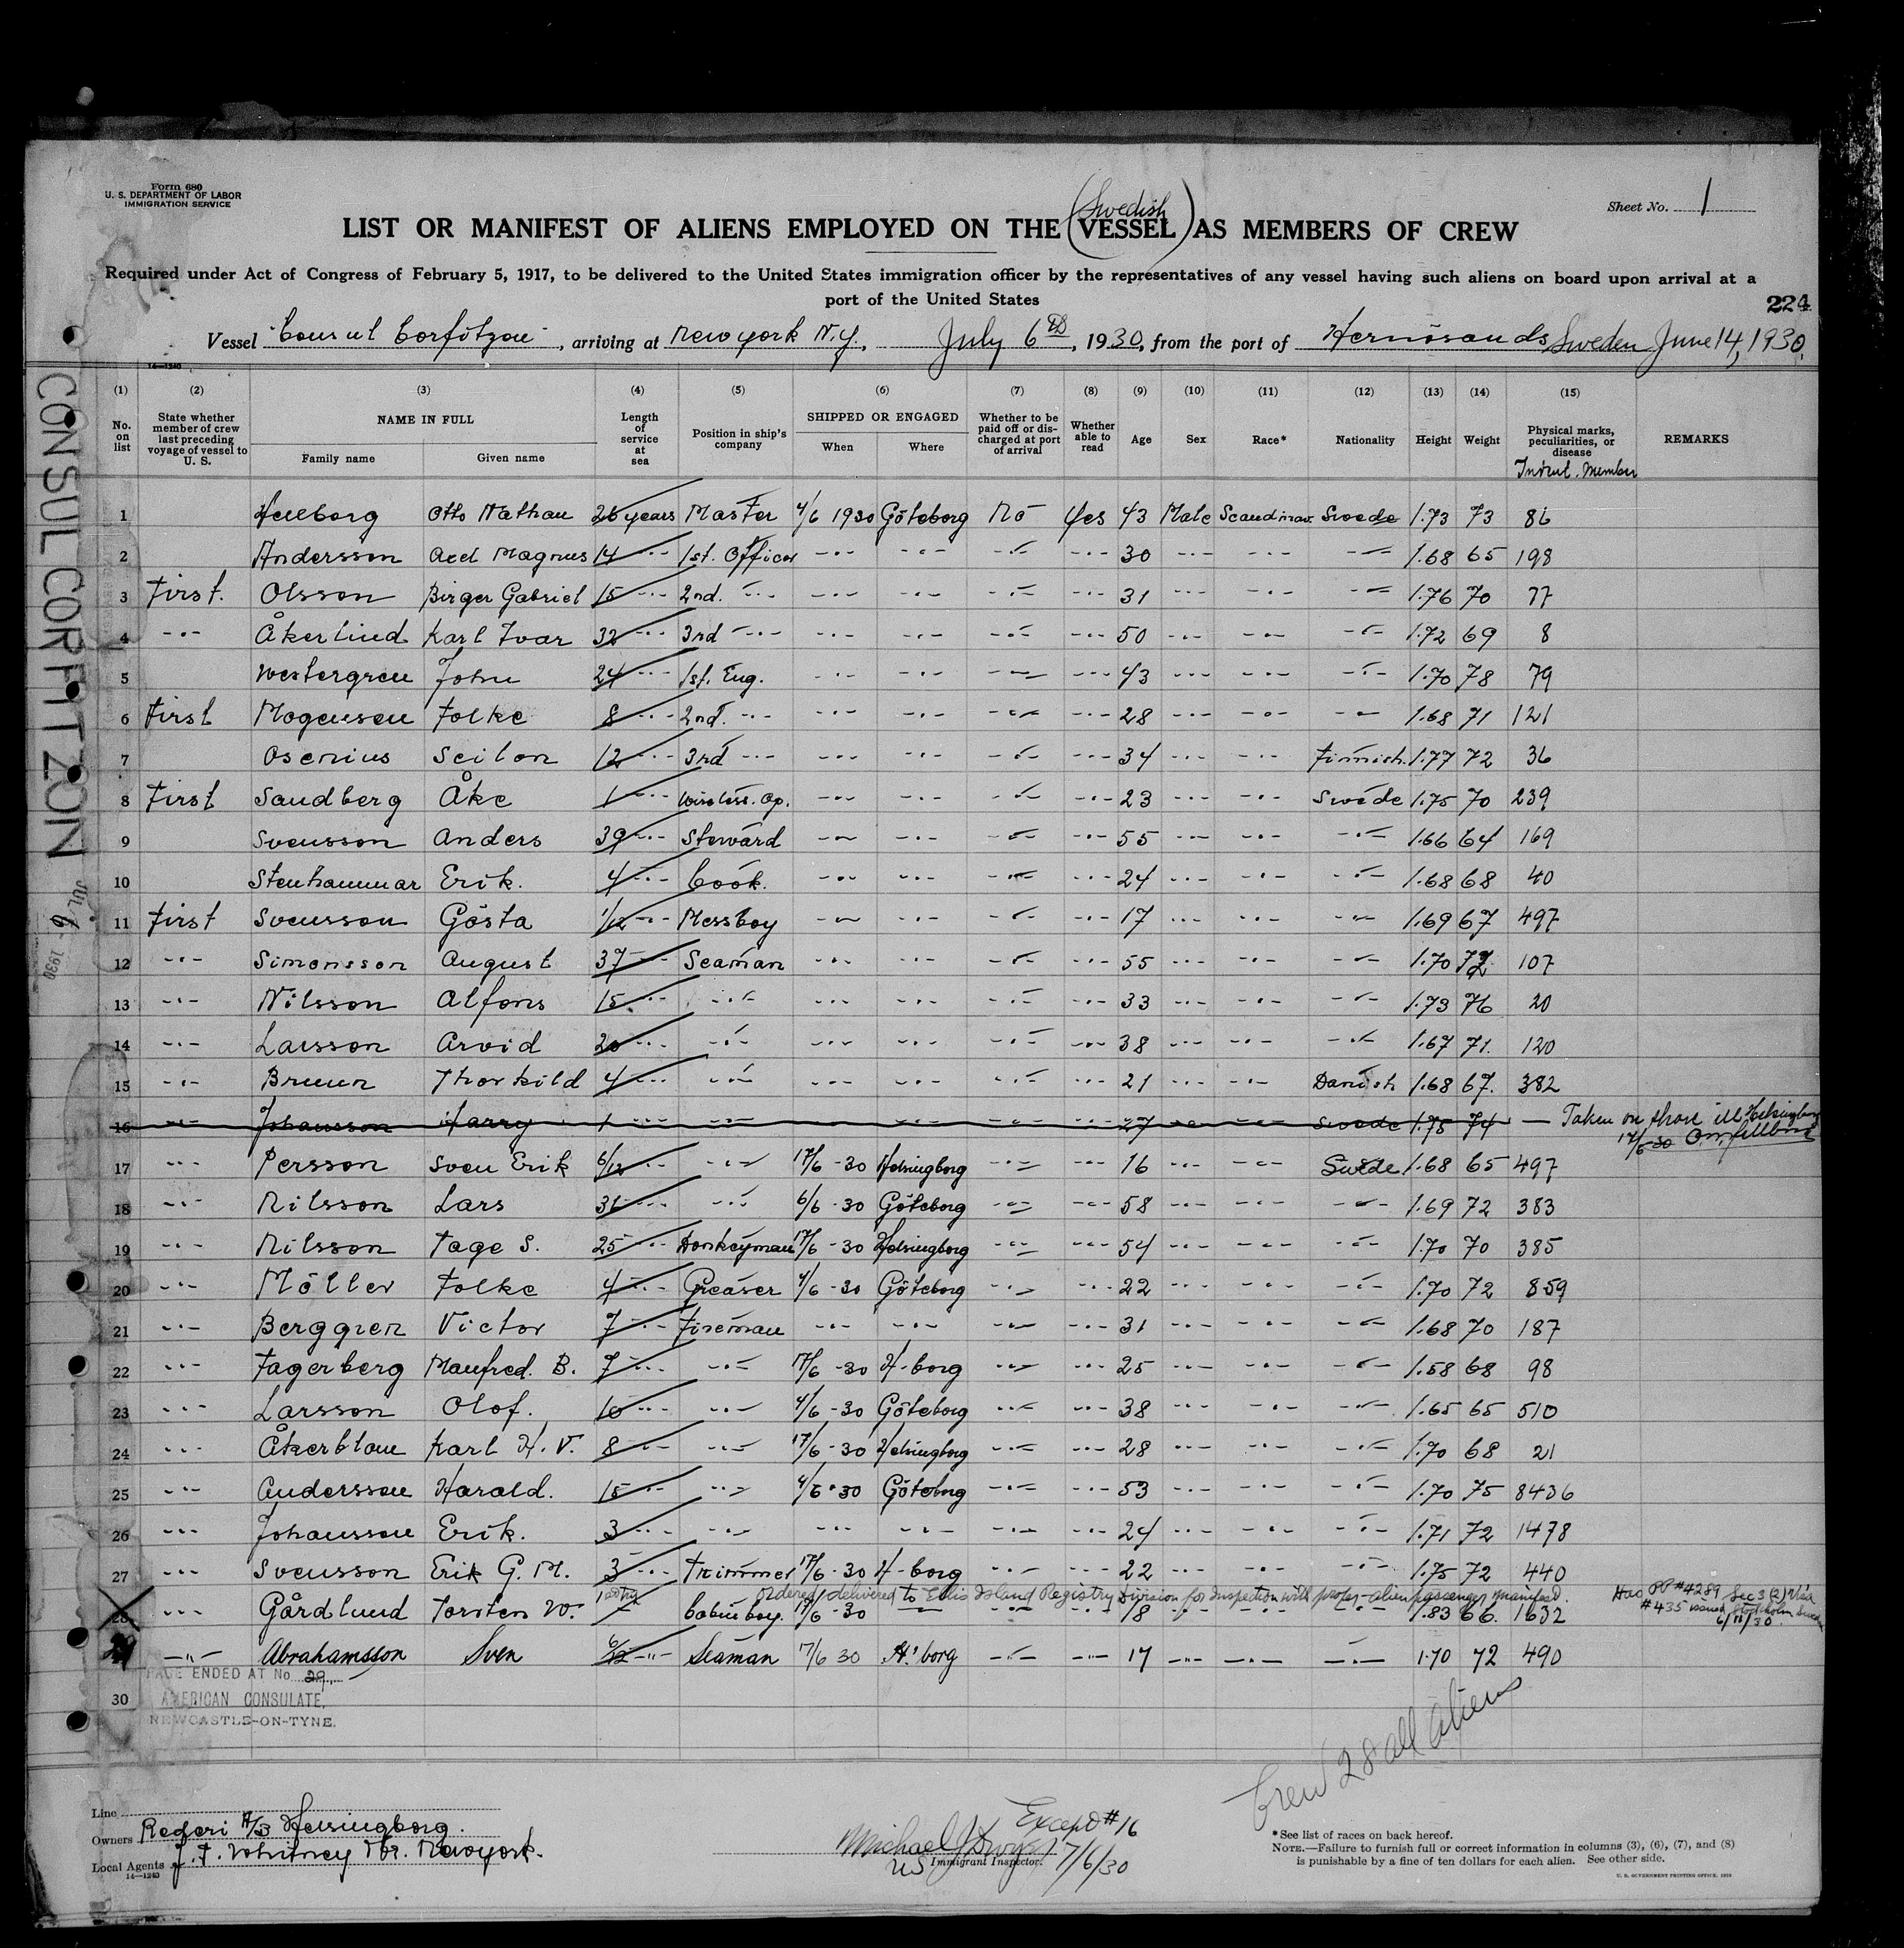 Form 680
U. S. DEPARTMENT OF LABOR
IMMIGRATION SERVICE
Sheet No. 1
(Swedish)
LIST OR MANIFEST OF ALIENS EMPLOYED ON THE VESSEL AS MEMBERS OF CREW
Required under Act of Congress of February 5, 1917, to be delivered to the United States immigration officer by the representatives of any vessel having such aliens on board upon arrival at a
port of the United States
224
Vessel "Consul Corfitzon", arriving at New york N.y., July 6th, 1930, from the port of Hernösands Sweden June 14, 1930.
14—1240
(1) (2) (3) (4) (5) (6) (7) (8) (9) (10) (11) (12) (13) (14) (15)
No. on list
State whether member of crew last preceding voyage of vessel to U. S.
NAME IN FULL
Family name Given name
Length of service at sea
Position in ship's company
SHIPPED OR ENGAGED
When Where
Whether to be paid off or discharged at port of arrival
Whether able to read
Age Sex Race* Nationality Height Weight
Physical marks, peculiarities, or disease
REMARKS
1 Otto Nathan 26 years Master 4/6 1930 Göteborg No Yes 43 Male Scandinav. Swede 1.73 73 86
2 Andersson Axel Magnus 14 -"- 1st. Officer -"- -"- -"- -"- 30 -"- -"- -"- 1.68 65 198
3 First. Olsson Birger Gabriel 15 -"- 2nd. -"- -"- -"- -"- -"- 31 -"- -"- -"- 1.76 70 77
4 -"- Åkerlind Karl Ivar 32 -"- 3rd -"- -"- -"- -"- -"- 50 -"- -"- -"- 1.72 69 8
5 Westergren John 24 -"- 1st. Eng. -"- -"- -"- -"- 43 -"- -"- -"- 1.70 78 79
6 First Mogensen Folke 8 -"- 2nd. -"- -"- -"- -"- -"- 28 -"- -"- -"- 1.68 71 121
7 Osenius Seilon 12 -"- 3rd -"- -"- -"- -"- -"- 34 -"- -"- Finnish. 1.77 72 36
8 First Sandberg Åke 1 -"- Wireless. Op. -"- -"- -"- -"- 23 -"- -"- Swede 1.75 70 239
9 Svensson Anders 39 -"- Steward -"- -"- -"- -"- 55 -"- -"- -"- 1.66 64 169
10 Stenhammar Erik. 4 -"- Cook. -"- -"- -"- -"- 24 -"- -"- -"- 1.68 68 40
11 First Svensson Gösta 1/12 -"- Messboy -"- -"- -"- -"- 17 -"- -"- -"- 1.69 67 497
12 -"- Simonsson August 37 -"- Seaman -"- -"- -"- -"- 55 -"- -"- -"- 1.70 72 107
13 -"- Nilsson Alfons 15 -"- -"- -"- -"- -"- -"- 33 -"- -"- -"- 1.73 76 20
14 -"- Larsson Arvid 20 -"- -"- -"- -"- -"- -"- 38 -"- -"- -"- 1.67 71. 120
15 -"- Bruun Thorkild 4 -"- -"- -"- -"- -"- -"- 21 -"- -"- Danish 1.68 67. 382
16 -"- Johansson Harry 1 -"- -"- -"- -"- -"- -"- 27 -"- -"- Swede 1.75 74 — Taken on shore ill Helsingborg
17/6-30
17 -"- Persson Sven Erik 6/12 -"- -"- 17/6 -30 Helsingborg -"- -"- 16 -"- -"- Swede 1.68 65 497
18 -"- Nilsson Lars 31 -"- -"- 6/6 -30 Göteborg -"- -"- 58 -"- -"- -"- 1.69 72 383
19 -"- Nilsson Tage S. 25 -"- Donkeyman 17/6 -30 Helsingborg -"- -"- 54 -"- -"- -"- 1.70 70 385
20 -"- Möller Folke 4 -"- Greaser 4/6 -30 Göteborg -"- -"- 22 -"- -"- -"- 1.70 72 859
21 -"- Berggren Victor 7 -"- Fireman -"- -"- -"- -"- 31 -"- -"- -"- 1.68 70 187
22 -"- Fagerberg Manfred. B. 7 -"- -"- 17/6 -30 H-borg -"- -"- 25 -"- -"- -"- 1.58 68 98
23 -"- Larsson Olof. 10 -"- -"- 4/6 -30 Göteborg -"- -"- 38 -"- -"- -"- 1.65 65 510
24 -"- Åkerblom Karl H. V. 8 -"- -"- 17/6 -30 Helsingborg -"- -"- 28 -"- -"- -"- 1.70 68 21
25 -"- Andersson Harald. 15 -"- -"- 4/6 -30 Göteborg -"- -"- 53 -"- -"- -"- 1.70 75 8436
26 -"- Johansson Erik. 3 -"- -"- -"- -"- -"- -"- 24 -"- -"- -"- 1.71 72 1478
27 -"- Svensson Erik G. M. 3 -"- Trimmer 17/6 -30 H-borg -"- -"- 22 -"- -"- -"- 1.75 72 440
Ordered delivered to Ellis Island Registry Division for Inspection with proper alien passenger manifest. Has PP #4289 Sec 3 (2) Visa
#435 issued Stockholm Sweden 6/11/30
28 -"- Gårdlund Torsten W. Cabin boy. 17/6 -30 -"- -"- -"- 18 -"- -"- -"- 1.83 66. 1632
29 -"- Abrahamsson Sven 6/12 -"- Seaman 17/6 30 H.'borg -"- -"- 17 -"- -"- -"- 1.70 72 490
PAGE ENDED AT No. 29.
30 AMERICAN CONSULATE,
NEWCASTLE-ON-TYNE.
Crew 28 all aliens
CONSUL CORFITZON
JUL 6 - 1930
Line
Owners Rederi A/B Helsingborg.
Local Agents J. F. Whitney Newyork.
14—1240
Except #16
Michael J. Dwyer 7/6/30
US Immigrant Inspector.
*See list of races on back hereof.
NOTE.—Failure to furnish full or correct information in columns (3), (6), (7), and (8)
is punishable by a fine of ten dollars for each alien. See other side.
U. S. GOVERNMENT PRINTING OFFICE